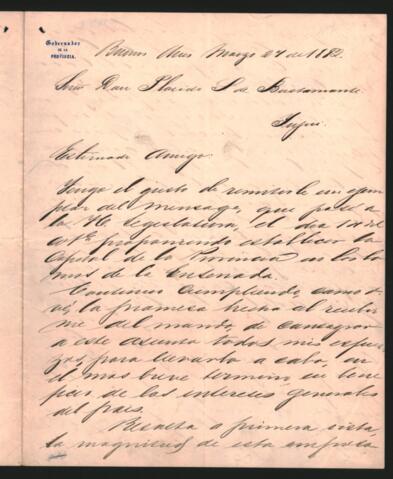 Gobernador
DE LA
PROVINCIA.
Buenos Aires Marzo 27 de 1882.
Señor Don Plácido S. de Bustamante.
Jujui.
Estimado Amigo:
Tengo el gusto de remitirle un ejem
plar del mensage, que pasé a
la H. Legislatura, el dia 14 del
cte. proponiendo establecer la
Capital de la Provincia en las Lo
mas de la Ensenada.
Continúo cumpliendo, como
vé, la promesa hecha al recibir
me del mando, de consagrar
a este asunto todos mis esfuer
zos, para llevarlo a cabo, en
el mas breve termino, en
de los intereses generales
del pais.
Resulta a primera vista,
la magnitud de esta empresa